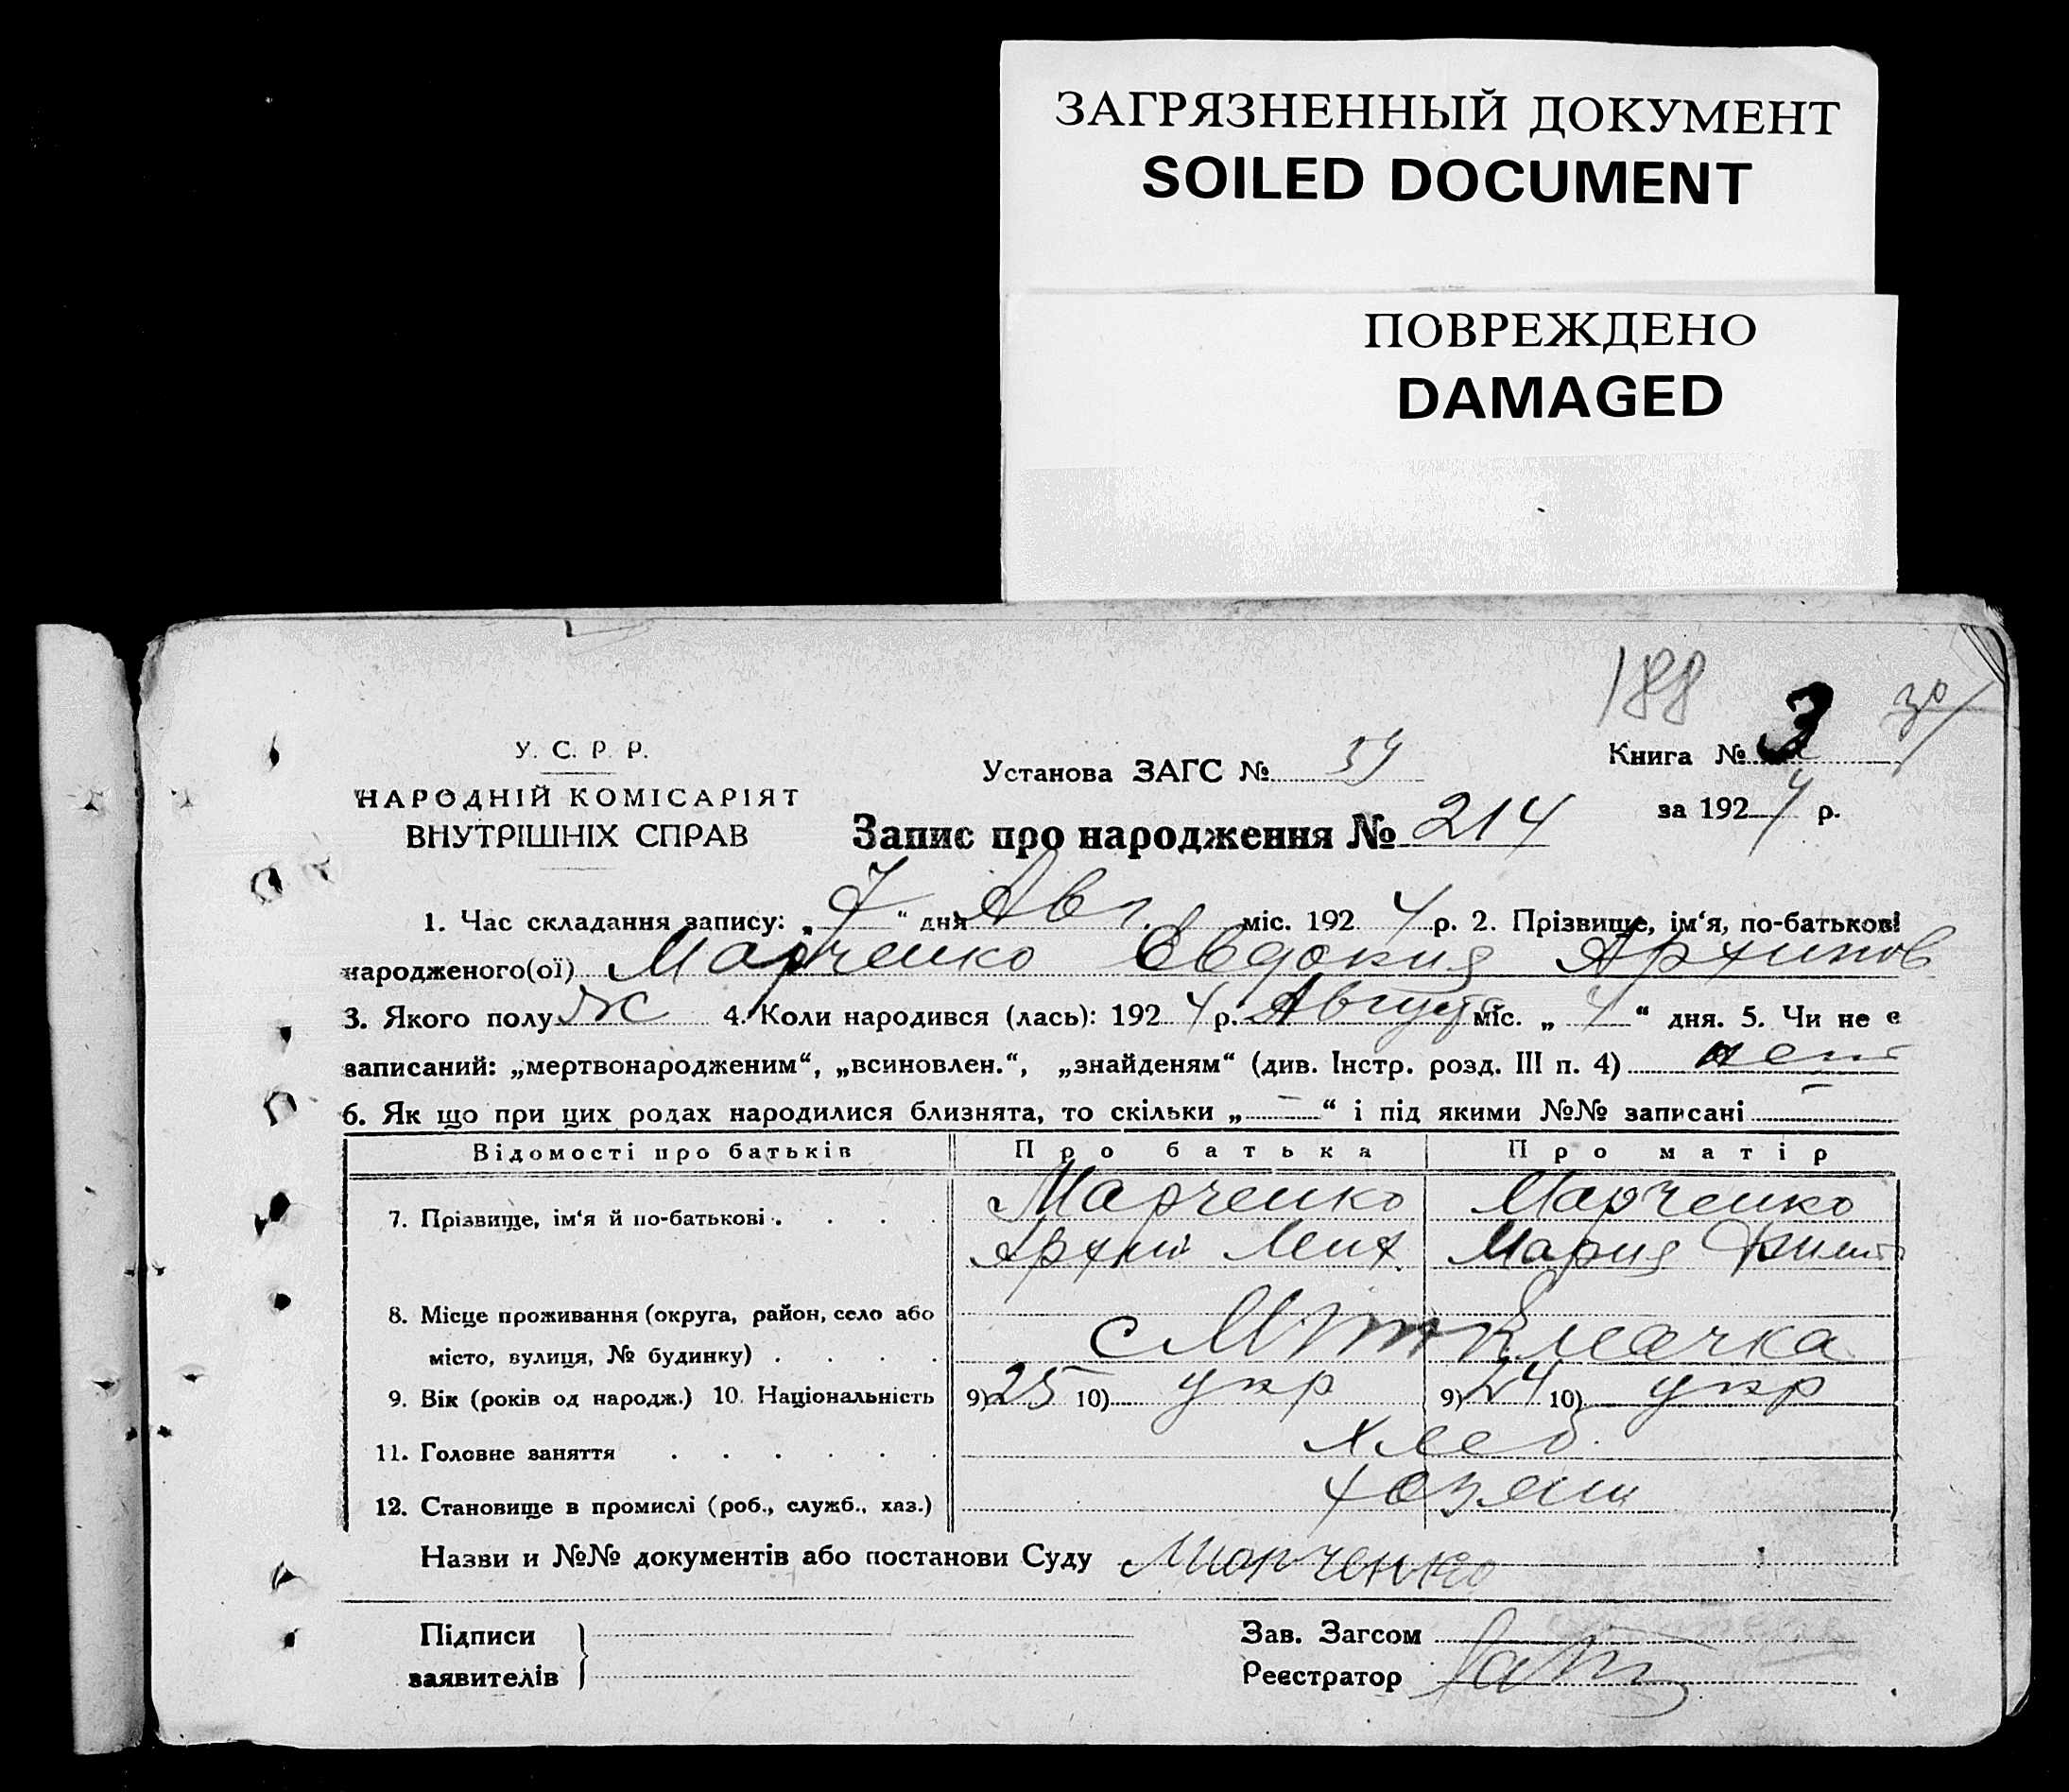 ЗАГРЯЗНЕННЫЙ ДОКУМЕНТ
SOILED DOCUMENT
ПОВРЕЖДЕНО
DAMAGED
188 3 30
У. С. Р. Р.
Установа ЗАГС № Книга №
НАРОДНІЙ КОМІСАРІЯТ
за 1924 р.
ВНУТРІШНІХ СПРАВ
Запис про народження № 214
1. Час складання запису: „7“ дня Авг. міс. 1924 р. 2. Прізвище, ім‘я, по-батькові
народженого(ої) Марченко Евдокия Архипов
3. Якого полу Ж 4. Коли народився (лась): 1924 р. Август міс. „4“ дня. 5. Чи не є
записаний: „мертвонародженим“, „всиновлен.“, „знайденям“ (див. Інстр. розд. III п. 4) нет
6. Як що при цих родах народилися близнята, то скільки „—“ і під якими №№ записані —
Відомості про батьків Про батька Про матір
7. Прізвище, ім‘я й по-батькові Марченко Марченко
Архип Мария
8. Місце проживання (округа, район, село або
місто, вулиця, № будинку) с
9. Вік (років од народж.) 10. Національність 9) 25 10) укр 9) 24 10) укр
11. Головне заняття Хлеб.
12. Становище в промислі (роб., служб., хаз.) хозяин
Назви и №№ документів або постанови Суду Марченко
Підписи Зав. Загсом
заявителів Реєстратор